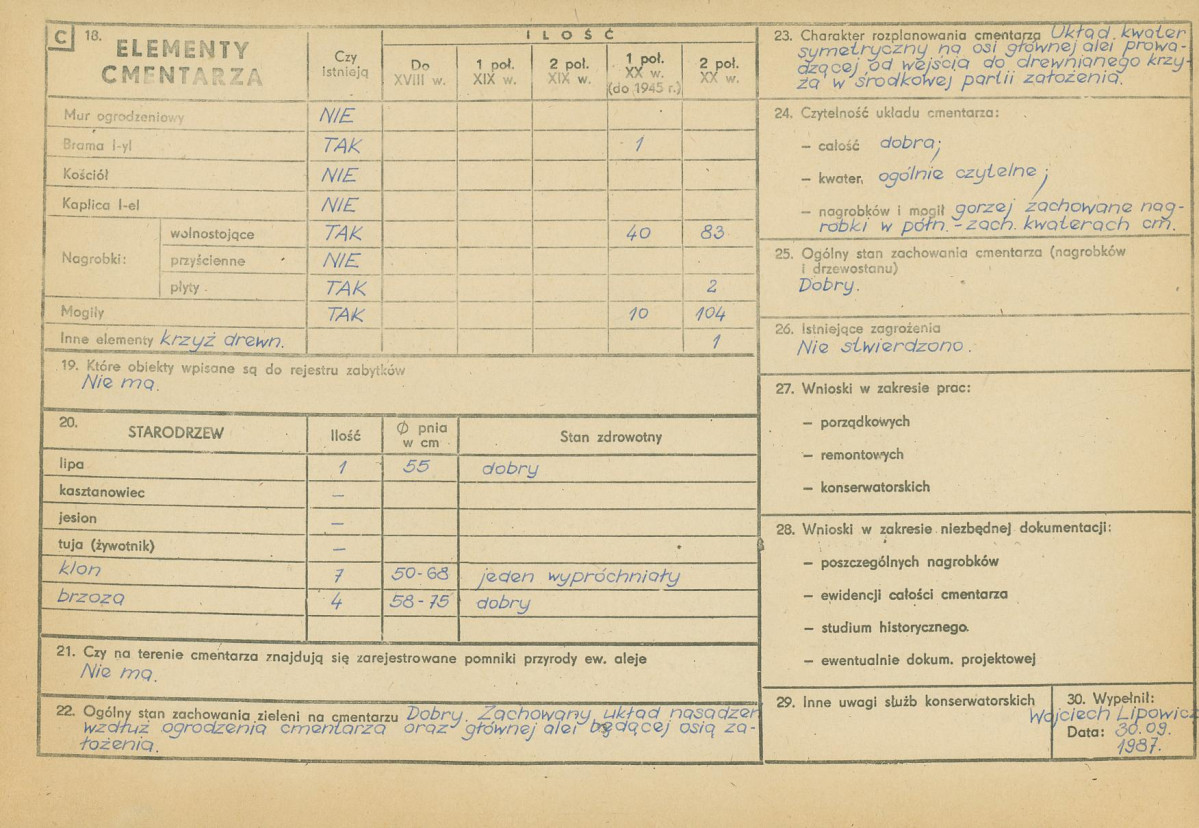 C 18. ELEMENTY CMENTARZA
Czy istnieją
ILOŚĆ
Do XVIII w.
1 poł. XIX w.
2 poł. XIX w.
1 poł. XX w. (do 1945 r.)
2 poł. XX w.
Mur ogrodzeniowy NIE
Brama I-yl TAK 1
Kościół NIE
Kaplica I-el NIE
Nagrobki:
wolnostojące TAK 40 83
przyścienne NIE
płyty TAK 2
Mogiły TAK 10 104
Inne elementy krzyż drewn. 1
19. Które obiekty wpisane są do rejestru zabytków
Nie ma.
20. STARODRZEW Ilość Ø pnia w cm Stan zdrowotny
lipa 1 55 dobry
kasztanowiec –
jesion –
tuja (żywotnik) –
klon 7 50-68 jeden wypróchniały
brzoza 4 58-75 dobry
21. Czy na terenie cmentarza znajdują się zarejestrowane pomniki przyrody ew. aleje
Nie ma.
22. Ogólny stan zachowania zieleni na cmentarzu Dobry. Zachowany układ nasadzeń
wzdłuż ogrodzenia cmentarza oraz głównej alei będącej osią za-
łożenia.
23. Charakter rozplanowania cmentarza Układ kwater
symetryczny na osi głównej alei prowa-
dzącej od wejścia do drewnianego krzy-
ża w środkowej partii założenia.
24. Czytelność układu cmentarza:
– całość dobra;
– kwater, ogólnie czytelne;
– nagrobków i mogił gorzej zachowane nag-
robki w półn.-zach. kwaterach cm.
25. Ogólny stan zachowania cmentarza (nagrobków
i drzewostanu)
Dobry.
26. Istniejące zagrożenia
Nie stwierdzono.
27. Wnioski w zakresie prac:
– porządkowych
– remontowych
– konserwatorskich
28. Wnioski w zakresie niezbędnej dokumentacji:
– poszczególnych nagrobków
– ewidencji całości cmentarza
– studium historycznego.
– ewentualnie dokum. projektowej
29. Inne uwagi służb konserwatorskich
30. Wypełnił:
Wojciech Lipowicz
Data: 30.09.
1987.